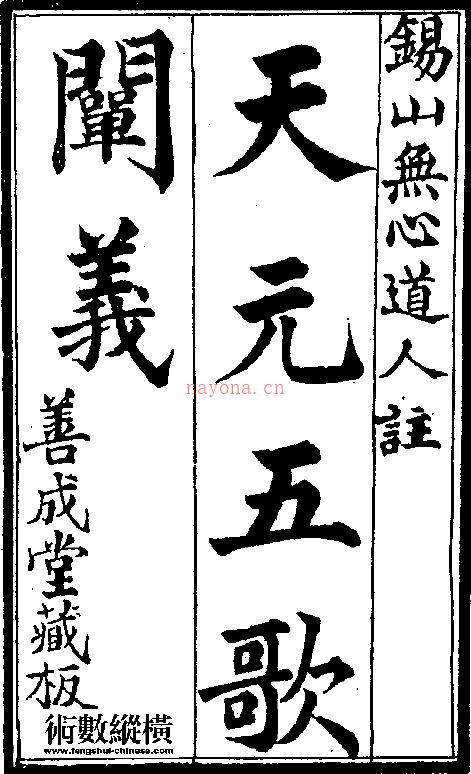 錫山無心道人註
天元五歌
闡義
善成堂藏板
nayona.cn
術數縱橫
www.fengshui-chinese.com